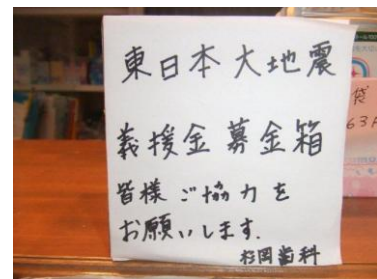 東日本大地震
義援金募金箱
皆様ご協力を
お願いします.
杉岡歯科
袋
63